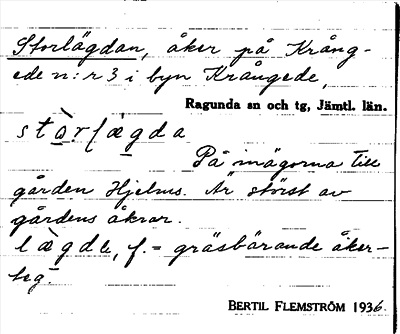 Storlägdan, åker på Krång-
ede n:r 3 i byn Krångede,
Ragunda sn och tg, Jämtl. län.
stàrlǽgda
På inägorna till
gården Hjelms. Är störst av
gårdens åkrar.
lǽgde, f. = gräsbärande åker-
teg.
BERTIL FLEMSTRÖM 1936.